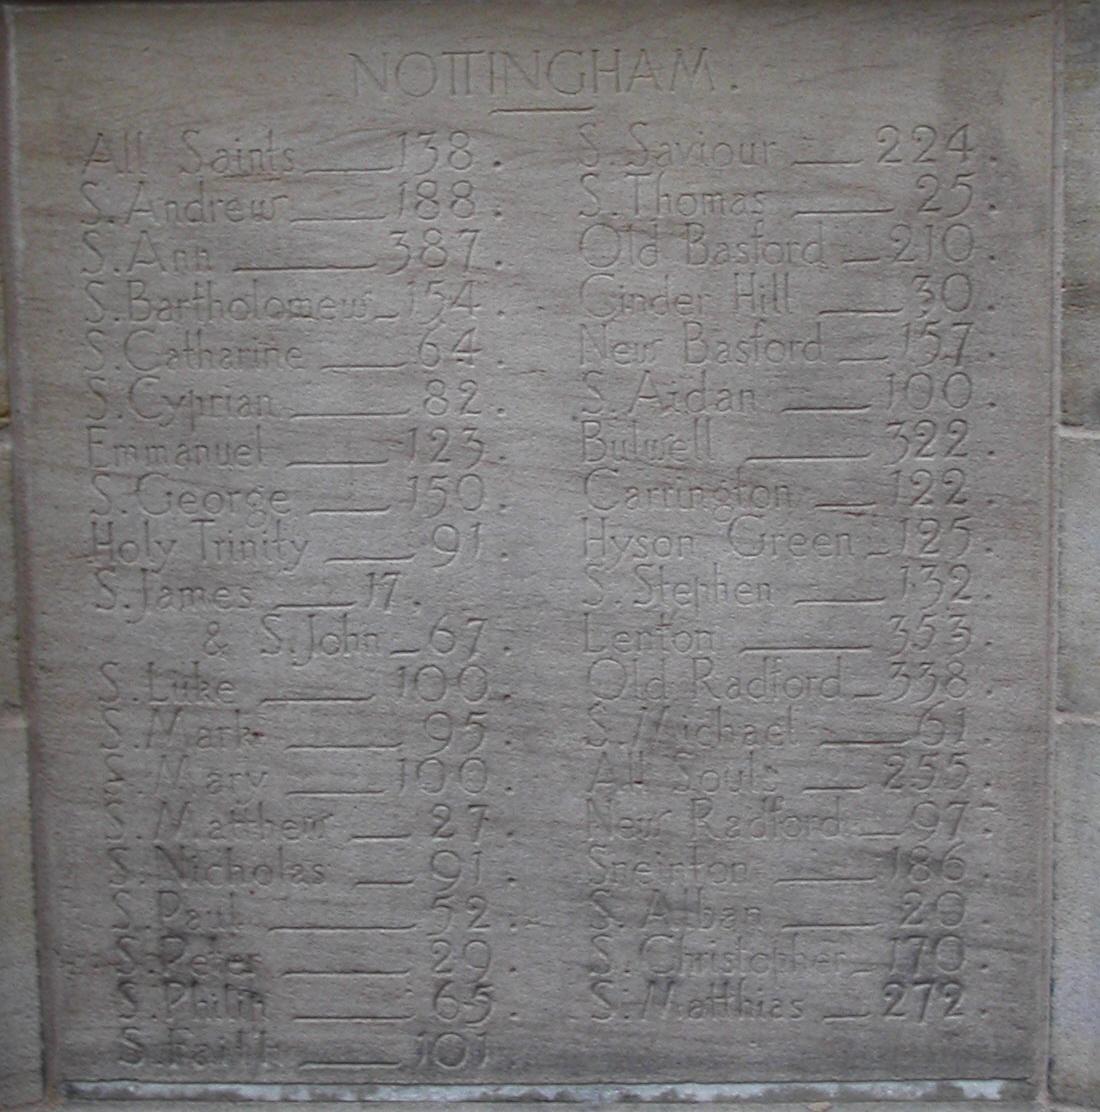 NOTTINGHAM.
All Saints 138.
S. Andrew 188.
S. Ann 387.
S. Bartholomew 154.
S. Catharine 64.
S. Cyprian 82.
Emmanuel 123.
S. George 150.
Holy Trinity 91.
S. James 17.
& S. John 67.
S. Luke 100.
S. Mark 95.
S. Mary 100.
S. Matthew 27.
S. Nicholas 91.
S. Paul 52.
S. Peter 29.
S. Philip 65.
S. 101.
S. Saviour 224.
S. Thomas 25.
Old Basford 210.
Cinder Hill 30.
New Basford 157.
S. Aidan 100.
Bulwell 322.
Carrington 122.
Hyson Green 125.
S. Stephen 132.
Lenton 353.
Old Radford 338.
S. Michael 61.
All Souls 255.
New Radford 97.
Sneinton 186.
S. Alban 20.
S. Christopher 170.
S. Matthias 272.